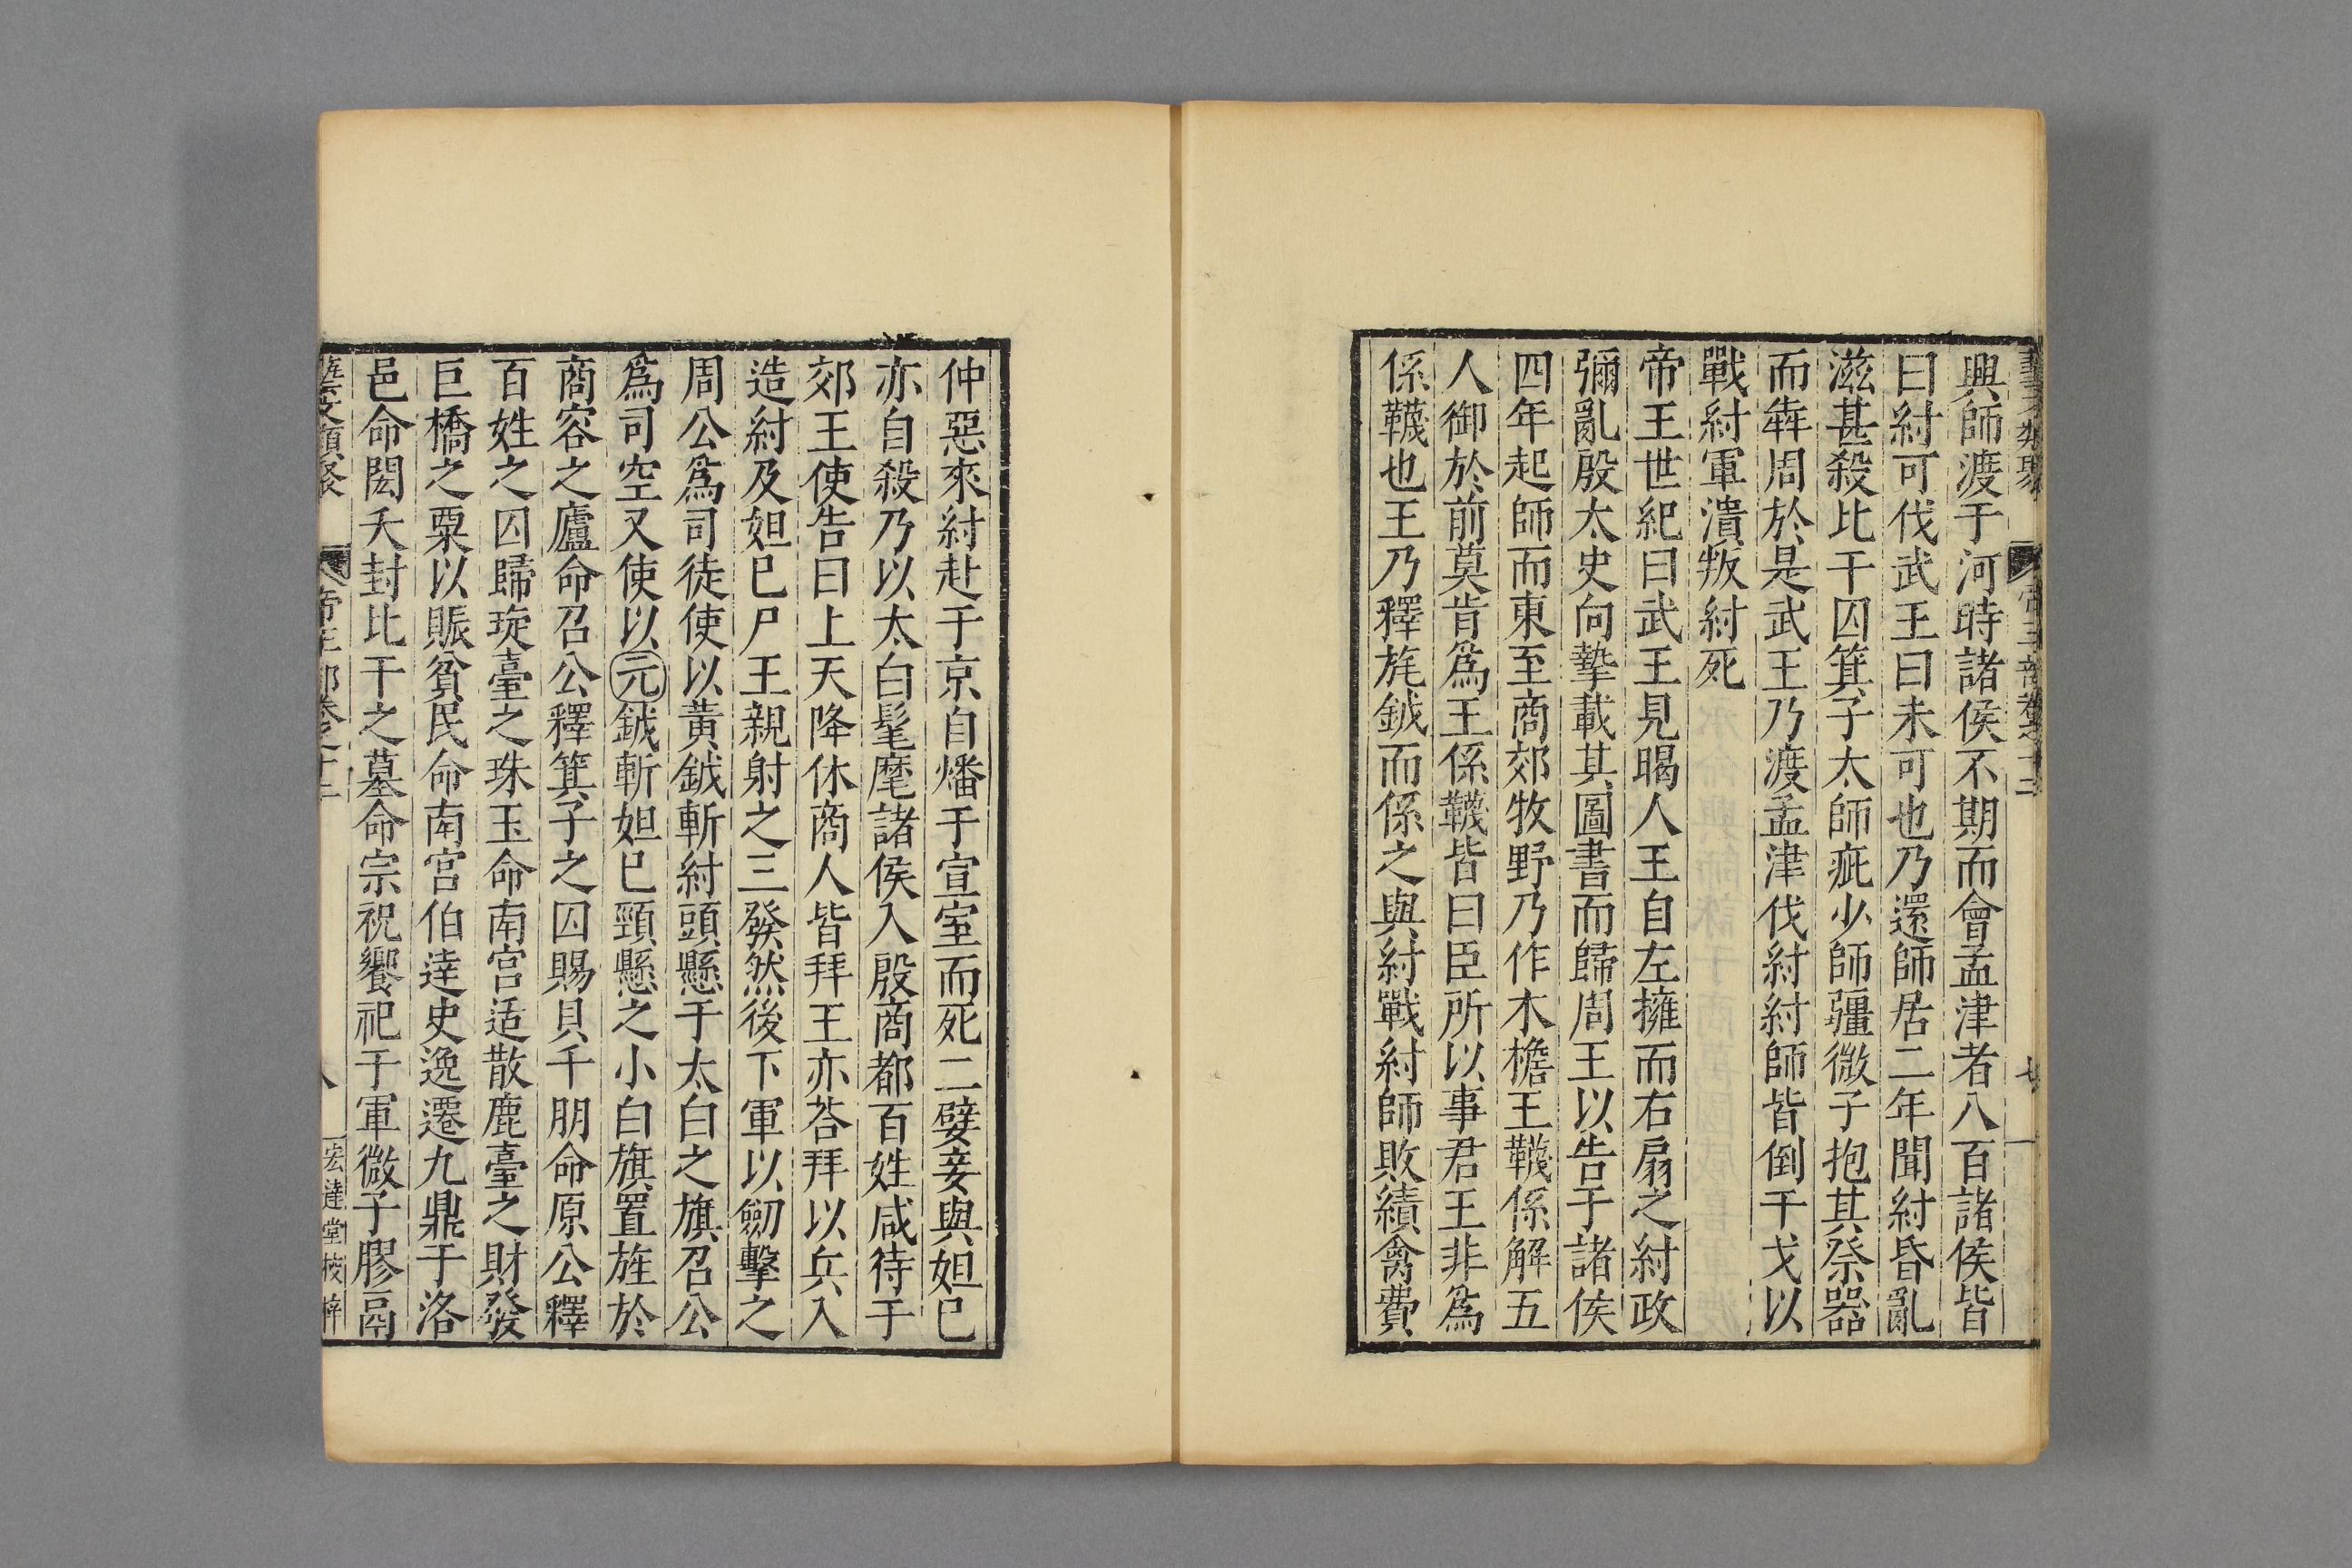 興師渡于河時諸侯不期而會孟津者八百諸侯皆
曰紂可伐武王曰未可也乃還師居二年聞紂昏亂
滋甚殺比干囚箕子太師疵少師彊微子抱其祭器
而犇周於是武王乃渡孟津伐紂紂師皆倒干戈以
戰紂軍潰叛紂死
帝王世紀曰武王見暍人王自左擁而右扇之紂政
彌亂殷太史向摯載其圖書而歸周王以告于諸侯
四年起師而東至商郊牧野乃作木檐王韈係解五
人御於前莫肯爲王係韈皆曰臣所以事君王非爲
係韈也王乃釋旄鉞而係之與紂戰紂師敗績禽費
仲惡來紂赴于京自燔于宣室而死二嬖妾與妲巳
亦自殺乃以太白髦麾諸侯入殷商都百姓咸待于
郊王使告曰上天降休商人皆拜王亦荅拜以兵入
造紂及妲巳尸王親射之三發然後下軍以劒擊之
周公爲司徒使以黄鉞斬紂頭懸于太白之旗召公
爲司空又使以元鉞斬妲巳頸懸之小白旗置旌於
商容之廬命召公釋箕子之囚賜貝千朋命原公釋
百姓之囚歸琁臺之珠玉命南宫适散鹿臺之財發
巨橋之粟以賑貧民命南宫伯逹史逸遷九鼎于洛
邑命閎夭封比干之墓命宗祝饗祀于軍微子膠鬲
藝文類聚 帝王部卷之十二 八 宏逹堂校梓